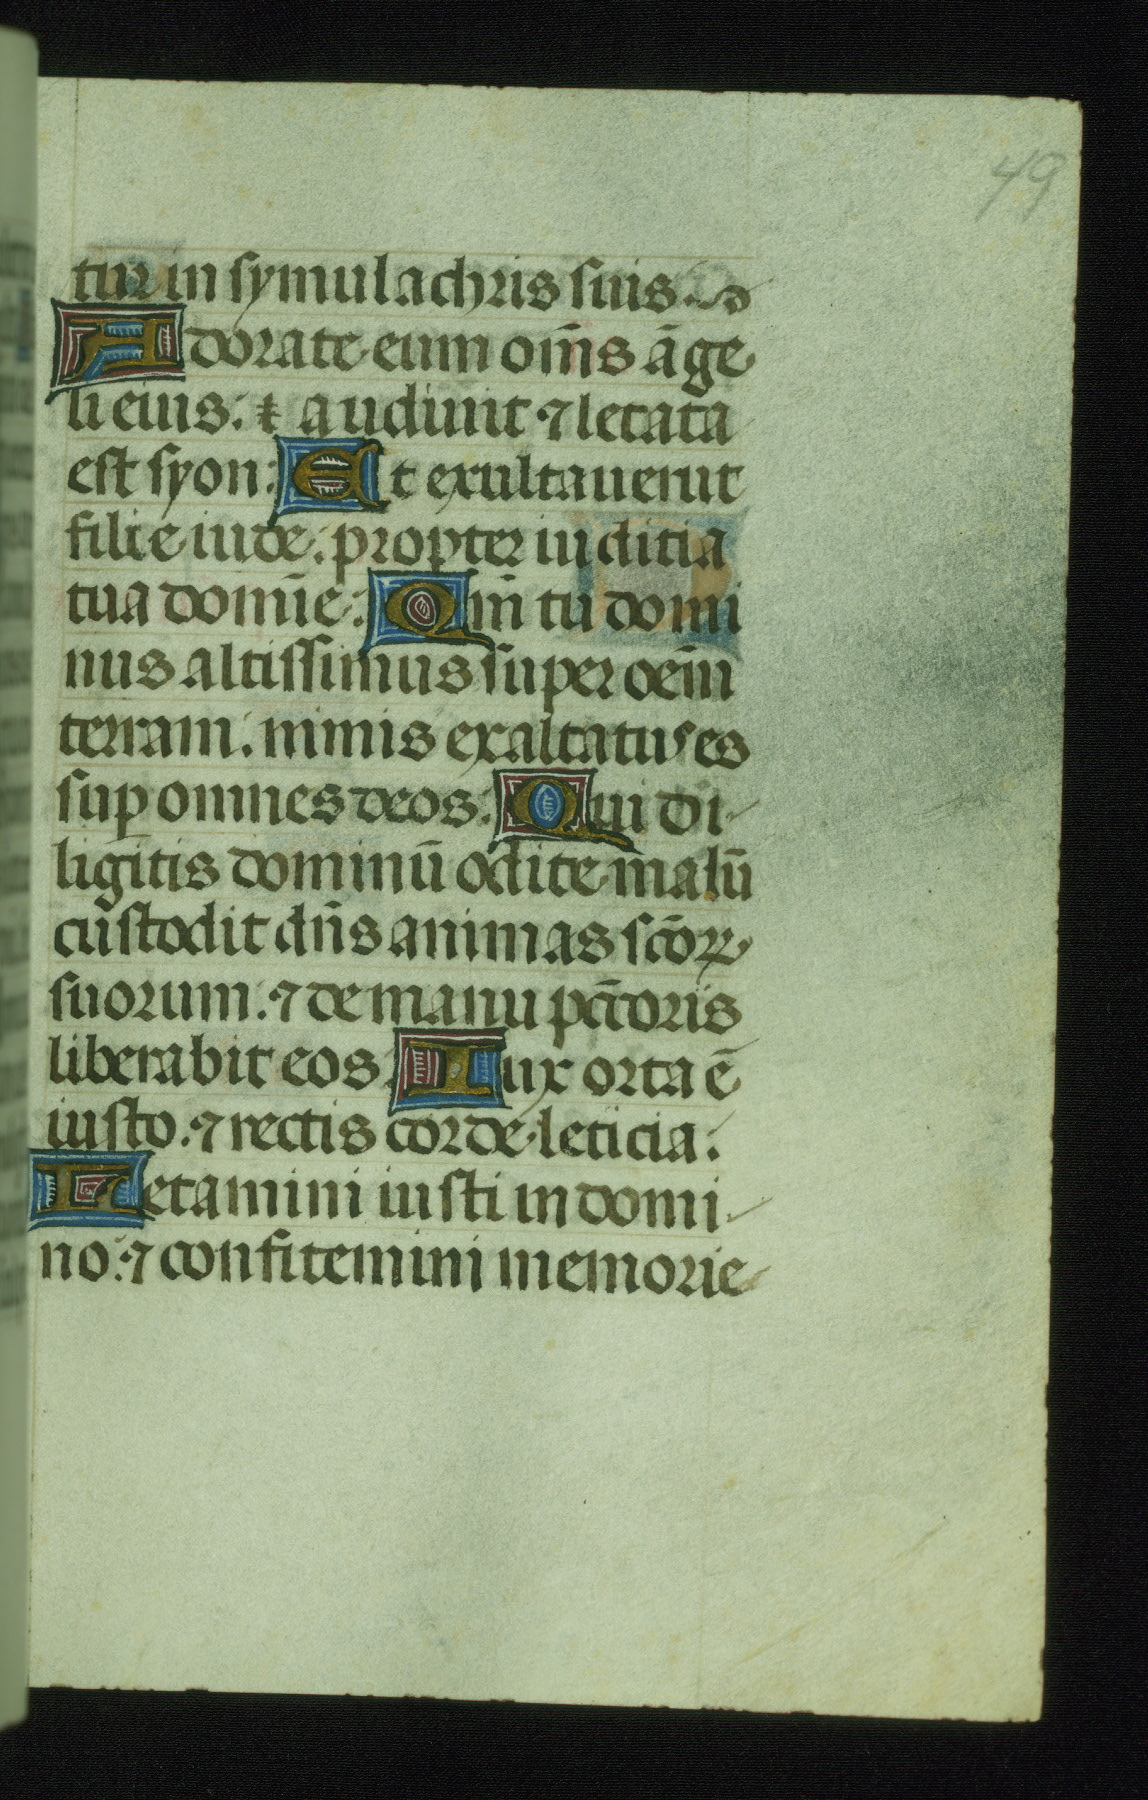 49
tur in symulachris suis.
Adorate eum om̄s āge
li eius: ⁊ audiuit ⁊ letata
est syon: Et exultauerut
filie iude: propter iuditia
tua domīe: Qm̄ tu domi
nus altissimus super oēm
terram. nimis exaltatus es
suꝑ omnes deos: Qui di
ligitis dominū odite malū
custodit dn̄s animas scōꝝ
suorum. ⁊ de manu pctōris
liberabit eos: Lux orta ē
iusto. ⁊ rectis corde leticia:
Letamini iusti in domi
no: ⁊ confitemini memorie